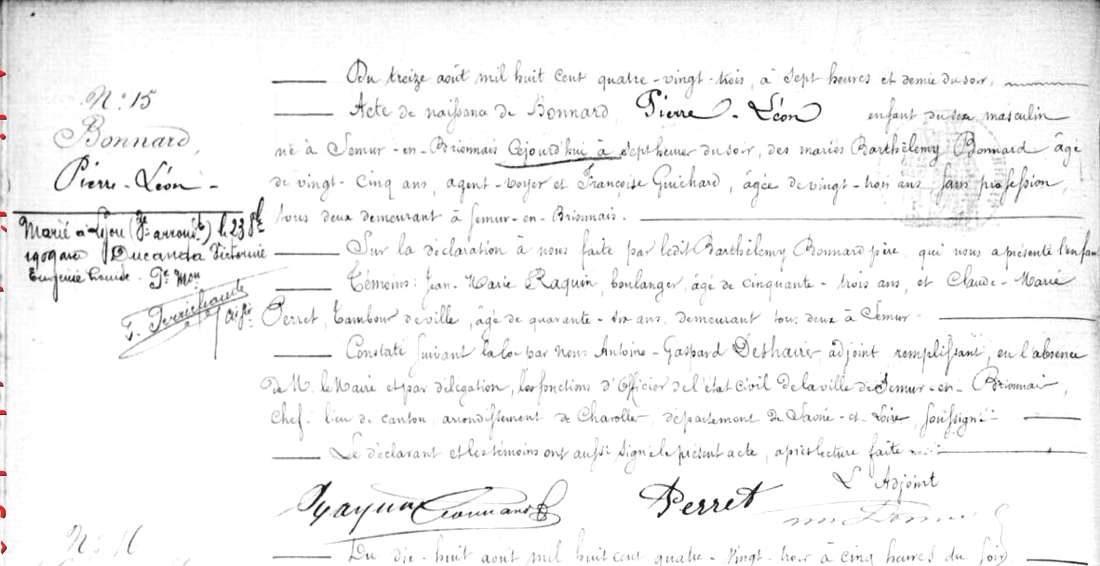 N° 15
Bonnard,
Pierre-Léon-
Marié à Lyon (3e arrondt) le 23 
1909 avec Ducanda Victorine
Eugénie Louise. Pr Mon
Du treize août mil huit cent quatre-vingt-trois, à sept heures et demie du soir,
Acte de naissance de Bonnard, Pierre-Léon enfant du sexe masculin
né à Semur-en-Brionnais cejourd'hui à sept heures du soir, des mariés Barthélemy Bonnard âgé
de vingt-cinq ans, agent-voyer et Françoise Guichard, âgée de vingt-trois ans sans profession,
tous deux demeurant à Semur-en-Brionnais.
Sur la déclaration à nous faite par ledit Barthélemy Bonnard père, qui nous a présenté l'enfant
Témoins: Jean-Marie Raquin, boulanger, âgé de cinquante-trois ans, et Claude-Marie
Perret, tambour de ville, âgé de quarante-six ans, demeurant tous deux à Semur-
Constaté suivant la loi par Nous Antoine-Gaspard Deshaires adjoint remplissant, en l'absence
de M. le Maire et par délégation, les fonctions d'Officier de l'état civil de la ville de Semur-en-Brionnais,
chef-lieu de canton arrondissement de Charolles, département de Saône-et-Loire, soussigné
Le déclarant et les témoins ont aussi signé le présent acte, après lecture faite
L'Adjoint
Raquin Bonnard Perret
N° 16
Du dix-huit août mil huit cent quatre-vingt-trois à cinq heures du soir